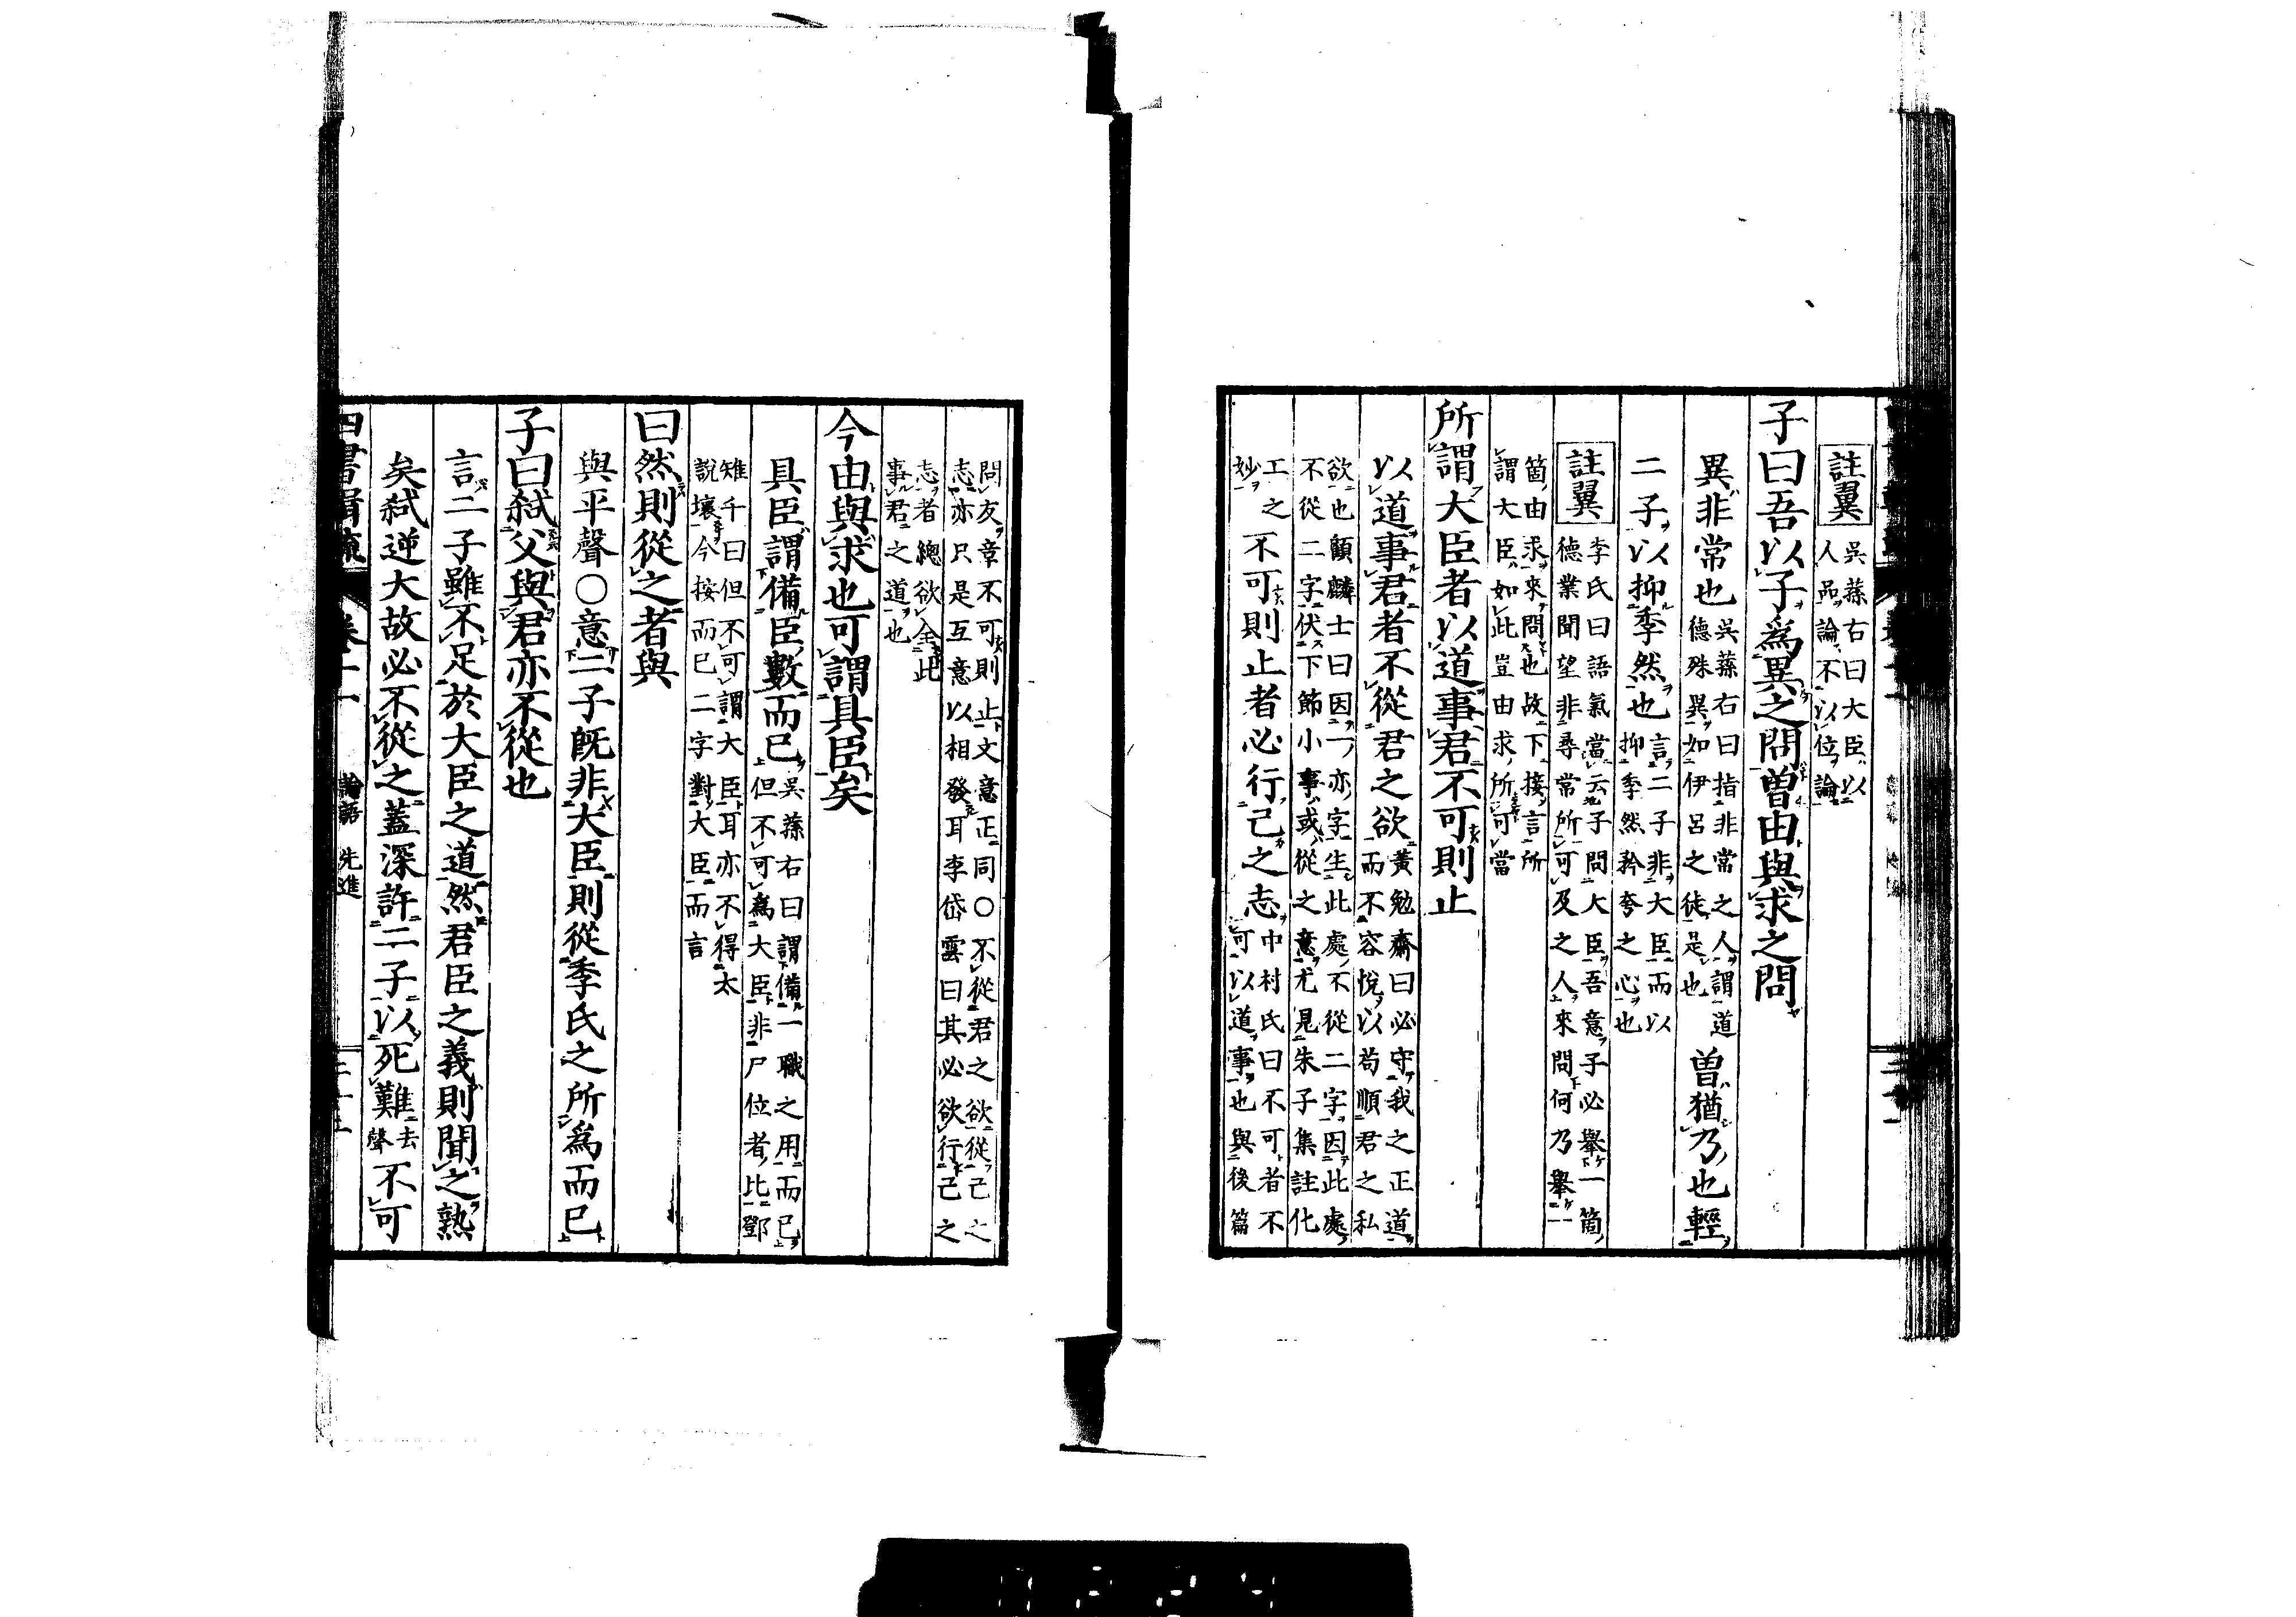 註翼
吳蓀右曰大臣以
人品論不以位論
子曰吾以子為異之問曾由與求之問
異非常也
吳蓀右曰指非常之人謂道
德殊異如伊呂之徒是也
曾猶乃也輕
二子以抑季然也
言二子非大臣而以
抑季然矜夸之心也
註翼
李氏曰語氣當云子問大臣吾意子必舉一箇
德業聞望非尋常所可及之人來問何乃舉一
箇由求來問也故下接言所
謂大臣如此豈由求所可當
所謂大臣者以道事君不可則止
以道事君者不從君之欲
黃勉齋曰必守我之正道
而不容悅以苟順君之私
欲也顧麟士曰因一亦字生此處不從二字因此處
不從二字伏下節小事或從之意尤見朱子集註化
工之
妙
不可則止者必行己之志
中村氏曰不可者不
可以道事也與後篇
問友章不可則止文意正同○不從君之欲從己之
志亦只是互意以相發耳李岱雲曰其必欲行己之
志者總欲全此
事君之道也
今由與求也可謂具臣矣
具臣謂備臣數而已
吳蓀右曰謂備一職之用而已
但不可為大臣非尸位者比鄧
雉千曰但不可謂大臣耳亦不得太
說壞今按而已二字對大臣而言
曰然則從之者與
與平聲○意二子既非大臣則從季氏之所為而已
子曰弒父與君亦不從也
言二子雖不足於大臣之道然君臣之義則聞之熟
矣弒逆大故必不從之蓋深許二子以死難
去
聲
不可
四書輯疏
卷十一
論語
先進